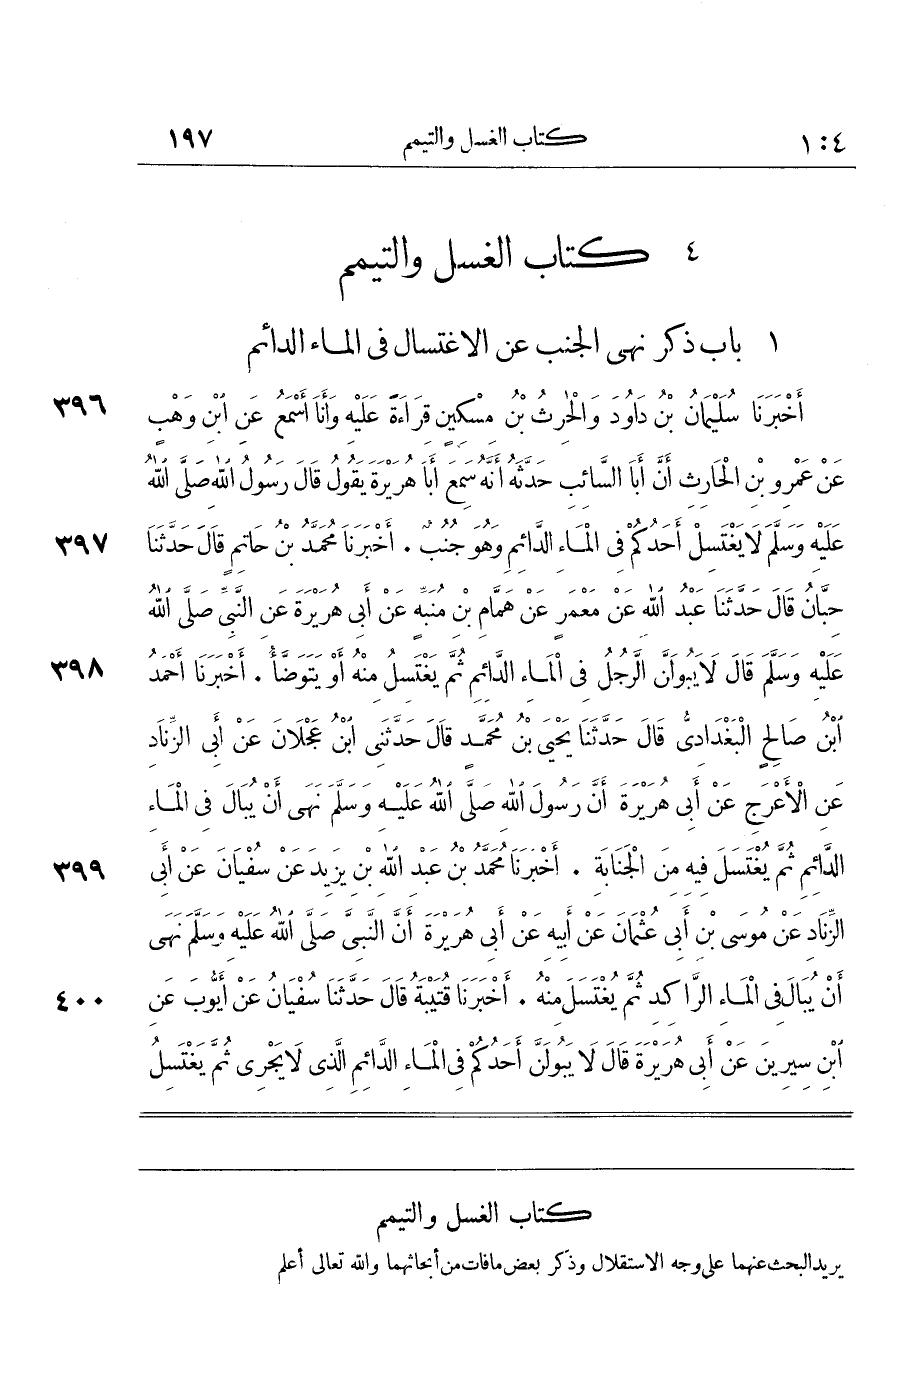 ٤ : ١ كتاب الغسل والتيمم ١٩٧
٤ كتاب الغسل والتيمم
١ باب ذكر نهى الجنب عن الاغتسال فى الماء الدائم
أَخْبَرَنَا سُلَيْمَانُ بْنُ دَاوُدَ وَالْحٰرِثُ بْنُ مِسْكِينٍ قِرَاءَةً عَلَيْهِ وَأَنَا أَسْمَعُ عَنِ ابْنِ وَهْبٍ ٣٩٦
عَنْ عَمْرِو بْنِ الْحَارِثِ أَنَّ أَبَا السَّائِبِ حَدَّثَهُ أَنَّهُ سَمِعَ أَبَا هُرَيْرَةَ يَقُولُ قَالَ رَسُولُ اللهِ صَلَّى اللهُ
عَلَيْهِ وَسَلَّمَ لَا يَغْتَسِلْ أَحَدُكُمْ فِى الْمَاءِ الدَّائِمِ وَهُوَ جُنُبٌ . أَخْبَرَنَا مُحَمَّدُ بْنُ حَاتِمٍ قَالَ حَدَّثَنَا ٣٩٧
حِبَّانُ قَالَ حَدَّثَنَا عَبْدُ اللهِ عَنْ مَعْمَرٍ عَنْ هَمَّامِ بْنِ مُنَبِّهٍ عَنْ أَبِى هُرَيْرَةَ عَنِ النَّبِىِّ صَلَّى اللهُ
عَلَيْهِ وَسَلَّمَ قَالَ لَا يَبُولَنَّ الرَّجُلُ فِى الْمَاءِ الدَّائِمِ ثُمَّ يَغْتَسِلُ مِنْهُ أَوْ يَتَوَضَّأُ . أَخْبَرَنَا أَحْمَدُ ٣٩٨
ابْنُ صَالِحٍ الْبَغْدَادِىُّ قَالَ حَدَّثَنَا يَحْيَى بْنُ مُحَمَّدٍ قَالَ حَدَّثَنِى ابْنُ عَجْلَانَ عَنْ أَبِى الزِّنَادِ
عَنِ الْأَعْرَجِ عَنْ أَبِى هُرَيْرَةَ أَنَّ رَسُولَ اللهِ صَلَّى اللهُ عَلَيْهِ وَسَلَّمَ نَهَى أَنْ يُبَالَ فِى الْمَاءِ
الدَّائِمِ ثُمَّ يُغْتَسَلَ فِيهِ مِنَ الْجَنَابَةِ . أَخْبَرَنَا مُحَمَّدُ بْنُ عَبْدِ اللهِ بْنِ يَزِيدَ عَنْ سُفْيَانَ عَنْ أَبِى ٣٩٩
الزِّنَادِ عَنْ مُوسَى بْنِ أَبِى عُثْمَانَ عَنْ أَبِيهِ عَنْ أَبِى هُرَيْرَةَ أَنَّ النَّبِىَّ صَلَّى اللهُ عَلَيْهِ وَسَلَّمَ نَهَى
أَنْ يُبَالَ فِى الْمَاءِ الرَّاكِدِ ثُمَّ يُغْتَسَلَ مِنْهُ . أَخْبَرَنَا قُتَيْبَةُ قَالَ حَدَّثَنَا سُفْيَانُ عَنْ أَيُّوبَ عَنِ ٤٠٠
ابْنِ سِيرِينَ عَنْ أَبِى هُرَيْرَةَ قَالَ لَا يَبُولَنَّ أَحَدُكُمْ فِى الْمَاءِ الدَّائِمِ الَّذِى لَا يَجْرِى ثُمَّ يَغْتَسِلُ
كتاب الغسل والتيمم
يريد البحث عنهما على وجه الاستقلال وذكر بعض مافات من أبحاثهما والله تعالى أعلم